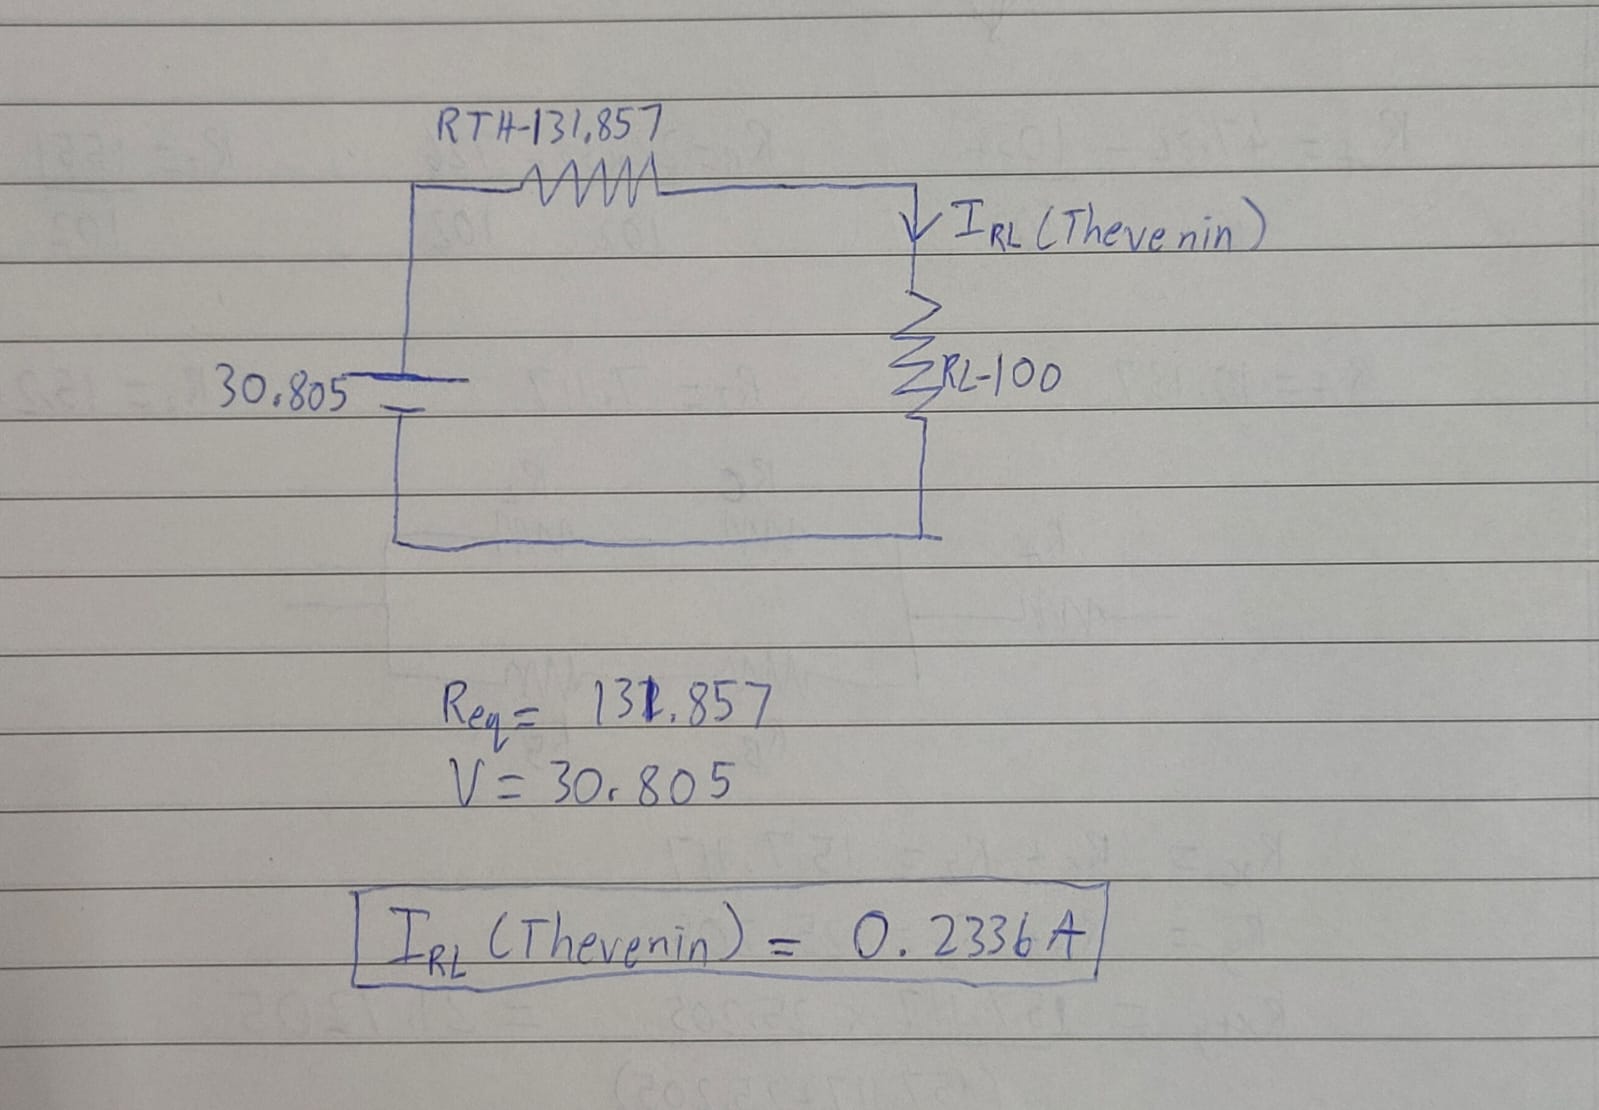 RTH-131.857
IRL (Thevenin)
30.805
RL-100
Req = 131.857
V = 30.805
IRL (Thevenin) = 0.2336A